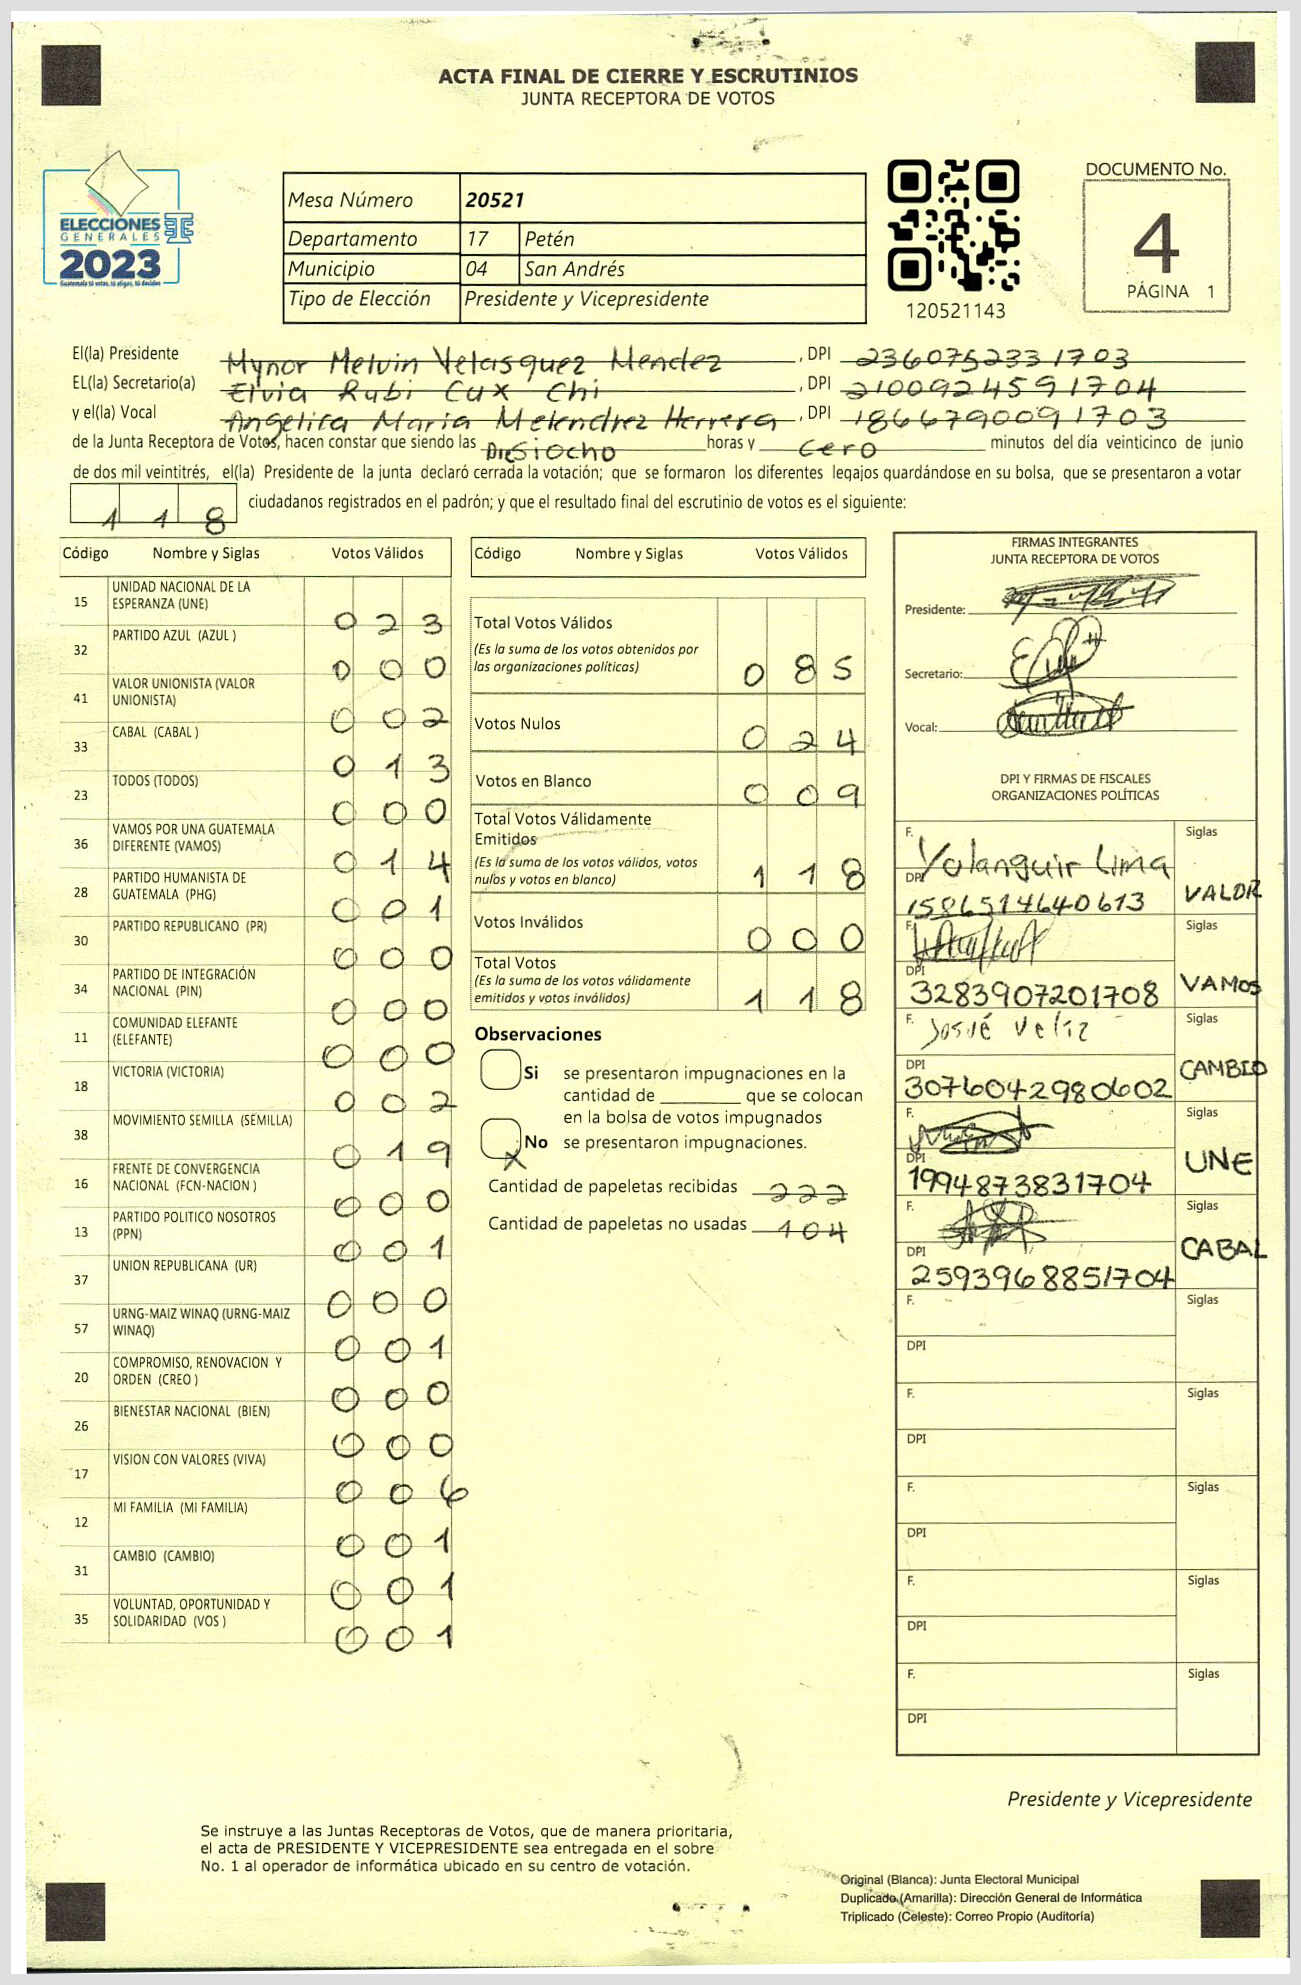 ACTA FINAL DE CIERRE Y ESCRUTINIOS
JUNTA RECEPTORA DE VOTOS
ELECCIONES
GENERALES
2023
Guatemala tú votas, tú eliges, tú decides
Mesa Número 20521
Departamento 17 Petén
Municipio 04 San Andrés
Tipo de Elección Presidente y Vicepresidente
120521143
DOCUMENTO No.
4
PÁGINA 1
El(la) Presidente Mynor Melvin Velasquez Mendez , DPI 2360752331703
EL(la) Secretario(a) Elvia Rubi Cux Chi , DPI 2100924591704
y el(la) Vocal Angelica Maria Melendrez Herrera , DPI 1866790091703
de la Junta Receptora de Votos, hacen constar que siendo las Diesiocho horas y cero minutos del día veinticinco de junio
de dos mil veintitrés, el(la) Presidente de la junta declaró cerrada la votación; que se formaron los diferentes legajos guardándose en su bolsa, que se presentaron a votar
1 1 8 ciudadanos registrados en el padrón; y que el resultado final del escrutinio de votos es el siguiente:
Código Nombre y Siglas Votos Válidos
15 UNIDAD NACIONAL DE LA ESPERANZA (UNE) 0 2 3
32 PARTIDO AZUL (AZUL ) 0 0 0
41 VALOR UNIONISTA (VALOR UNIONISTA) 0 0 2
33 CABAL (CABAL ) 0 1 3
23 TODOS (TODOS) 0 0 0
36 VAMOS POR UNA GUATEMALA DIFERENTE (VAMOS) 0 1 4
28 PARTIDO HUMANISTA DE GUATEMALA (PHG) 0 0 1
30 PARTIDO REPUBLICANO (PR) 0 0 0
34 PARTIDO DE INTEGRACIÓN NACIONAL (PIN) 0 0 0
11 COMUNIDAD ELEFANTE (ELEFANTE) 0 0 0
18 VICTORIA (VICTORIA) 0 0 2
38 MOVIMIENTO SEMILLA (SEMILLA) 0 1 9
16 FRENTE DE CONVERGENCIA NACIONAL (FCN-NACION ) 0 0 0
13 PARTIDO POLITICO NOSOTROS (PPN) 0 0 1
37 UNION REPUBLICANA (UR) 0 0 0
57 URNG-MAIZ WINAQ (URNG-MAIZ WINAQ) 0 0 1
20 COMPROMISO, RENOVACION Y ORDEN (CREO ) 0 0 0
26 BIENESTAR NACIONAL (BIEN) 0 0 0
17 VISION CON VALORES (VIVA) 0 0 6
12 MI FAMILIA (MI FAMILIA) 0 0 1
31 CAMBIO (CAMBIO) 0 0 1
35 VOLUNTAD, OPORTUNIDAD Y SOLIDARIDAD (VOS ) 0 0 1
Código Nombre y Siglas Votos Válidos
Total Votos Válidos
(Es la suma de los votos obtenidos por
las organizaciones políticas) 0 8 5
Votos Nulos 0 2 4
Votos en Blanco 0 0 9
Total Votos Válidamente
Emitidos
(Es la suma de los votos válidos, votos
nulos y votos en blanco) 1 1 8
Votos Inválidos 0 0 0
Total Votos
(Es la suma de los votos válidamente
emitidos y votos inválidos) 1 1 8
Observaciones
Si se presentaron impugnaciones en la
cantidad de ________ que se colocan
en la bolsa de votos impugnados
No se presentaron impugnaciones.
X
Cantidad de papeletas recibidas 222
Cantidad de papeletas no usadas 104
FIRMAS INTEGRANTES
JUNTA RECEPTORA DE VOTOS
Presidente:
Secretario:
Vocal:
DPI Y FIRMAS DE FISCALES
ORGANIZACIONES POLÍTICAS
F. Yolanguir Lima Siglas
DPI 1586514640613 VALOR
F. Siglas
DPI 3283907201708 VAMOS
F. Josué Veliz Siglas
DPI 3076042980602 CAMBIO
F. Siglas
DPI 1994873831704 UNE
F. Siglas
DPI 2593968851704 CABAL
F. Siglas
DPI
F. Siglas
DPI
F. Siglas
DPI
F. Siglas
DPI
F. Siglas
DPI
Presidente y Vicepresidente
Se instruye a las Juntas Receptoras de Votos, que de manera prioritaria,
el acta de PRESIDENTE Y VICEPRESIDENTE sea entregada en el sobre
No. 1 al operador de informática ubicado en su centro de votación.
Original (Blanca): Junta Electoral Municipal
Duplicado (Amarilla): Dirección General de Informática
Triplicado (Celeste): Correo Propio (Auditoría)